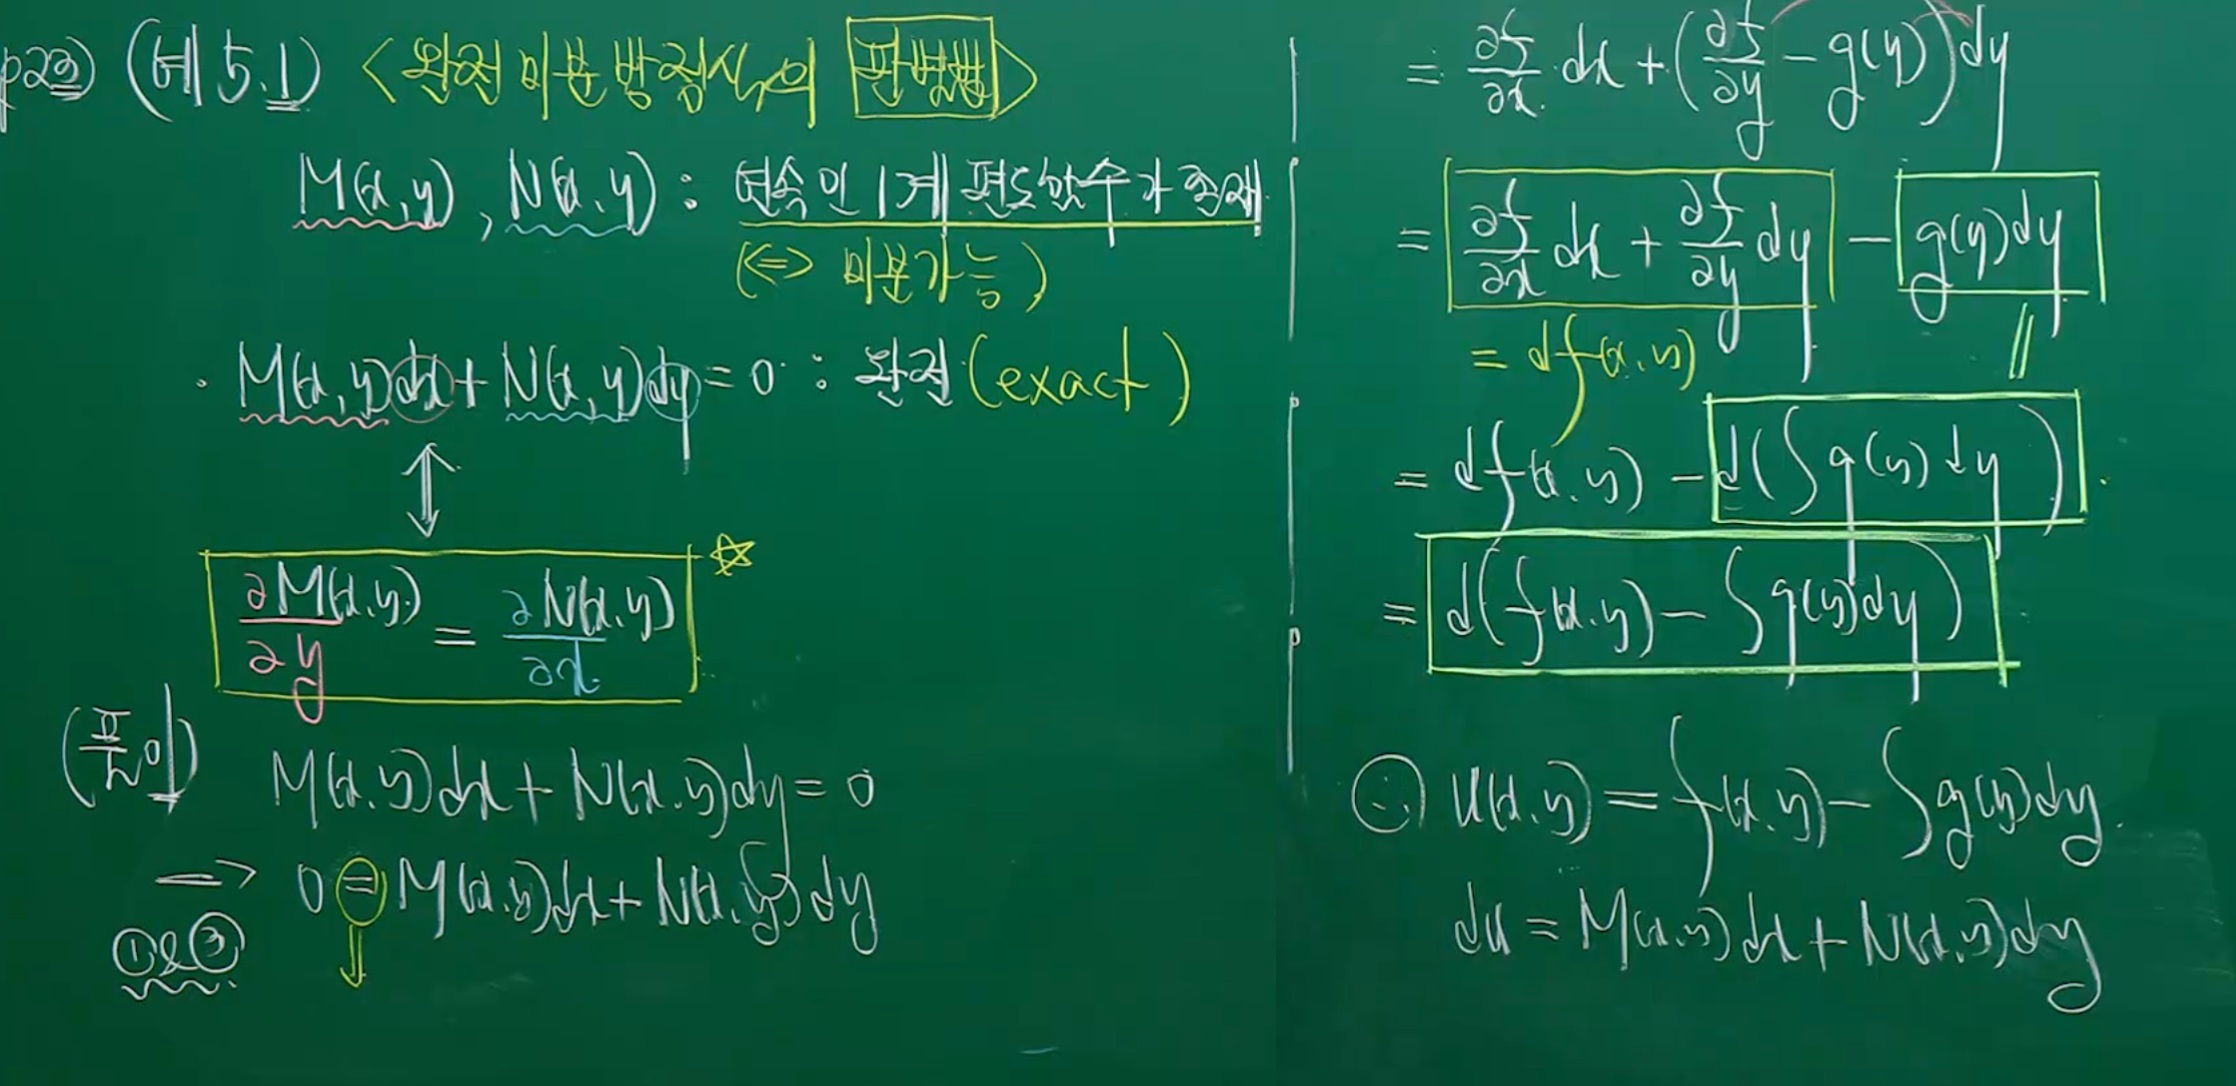 p23) (예 5.1) <완전 미분 방정식의 판별법>
M(x,y), N(x,y) : 연속인 1계 편도함수가 존재
(<=> 미분가능)
· M(x,y)dx + N(x,y)dy = 0 : 완전 (exact)
↕
∂M(x,y)/∂y = ∂N(x,y)/∂x ☆
(풀이) M(x,y)dx + N(x,y)dy = 0
⇒ 0 = M(x,y)dx + N(x,y)dy
①&③ ↓
= ∂f/∂x · dx + (∂f/∂y - g(y))dy
= ∂f/∂x dx + ∂f/∂y dy - g(y)dy
= df(x,y) ∥
= df(x,y) - d(∫g(y)dy).
= d(f(x,y) - ∫g(y)dy)
∴ u(x,y) = f(x,y) - ∫g(y)dy.
du = M(x,y)dx + N(x,y)dy